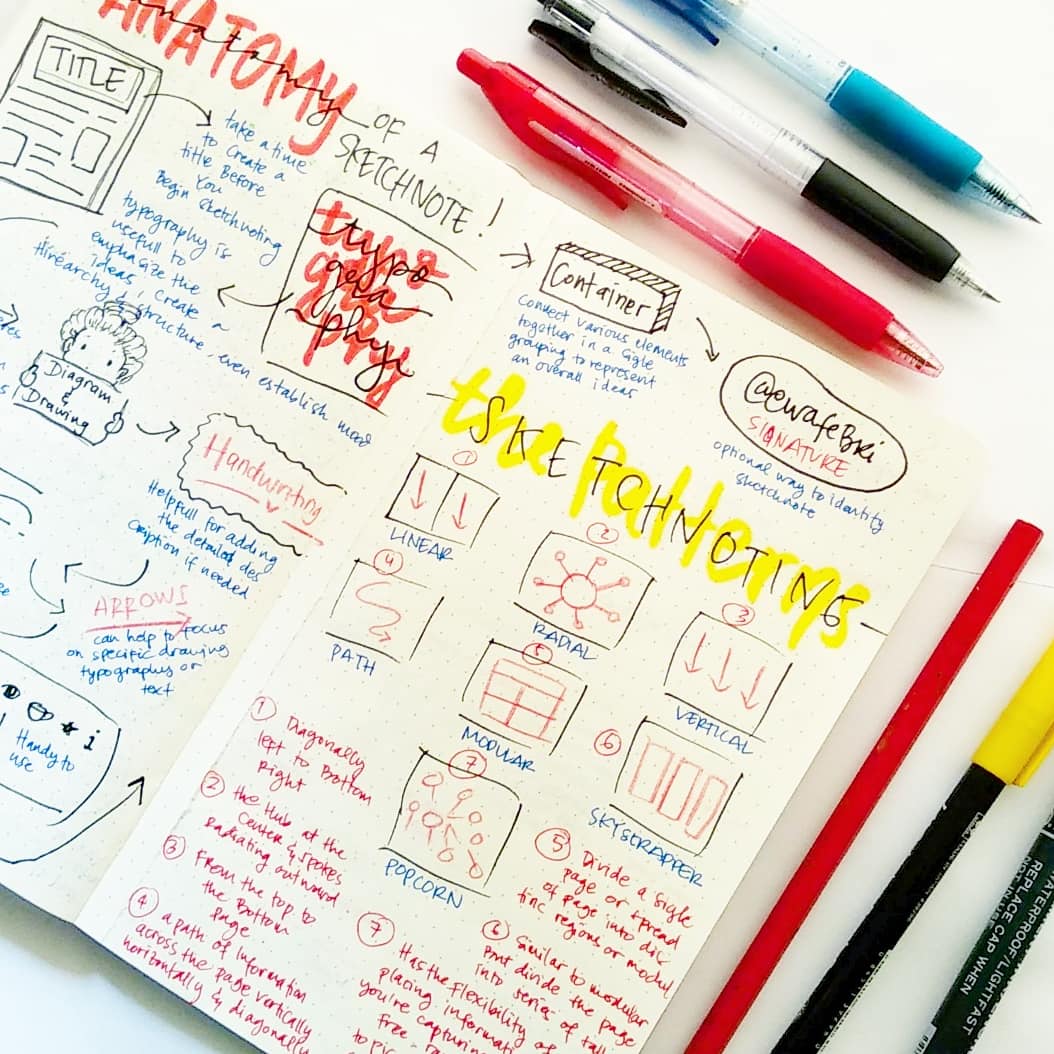 ANATOMY
anatomy
OF
A
SKETCHNOTE!
TITLE
take a time
to Create a
title Before
You
Begin Sketchnoting
typography is
usefull to
emphasize the
ideas, Create a
hirearchy & structure, even establish mood
typo
gra
phy
typo
gra
phy
Diagram
&
Drawing
Handwriting
Helpfull for adding
the detailed des
cription if needed
ARROWS
can help to focus
on specific drawing
typographs or
text
i
Handy to
use
Container
Connect various elements
together in a Sigle
grouping to represent
an overall ideas
@ewafebri
SIGNATURE
optional way to identity
sketchnote
the Patterns
SKETCHNOTING
1
LINEAR
2
RADIAL
3
VERTICAL
4
PATH
5
MODULAR
6
SKYSCRAPPER
7
POPCORN
1 Diagonally
left to Bottom
Right
2 the Hub at the
Center & spokes
Radiating outward
3 From the top to
the Bottom
page
4 a path of Information
across the page vertically
horizontally & diagonally
5 Divide a sigle
page or spread
of page into dic
tinc regions or modul
6 Similar to modular
but divide the page
into series of tall
7 Has the flexibility of
placing informati
you're capturing
free
to pic
ATERPROOF/LIGHTFAST
REPLACE CAP WHEN
NOT IN USE